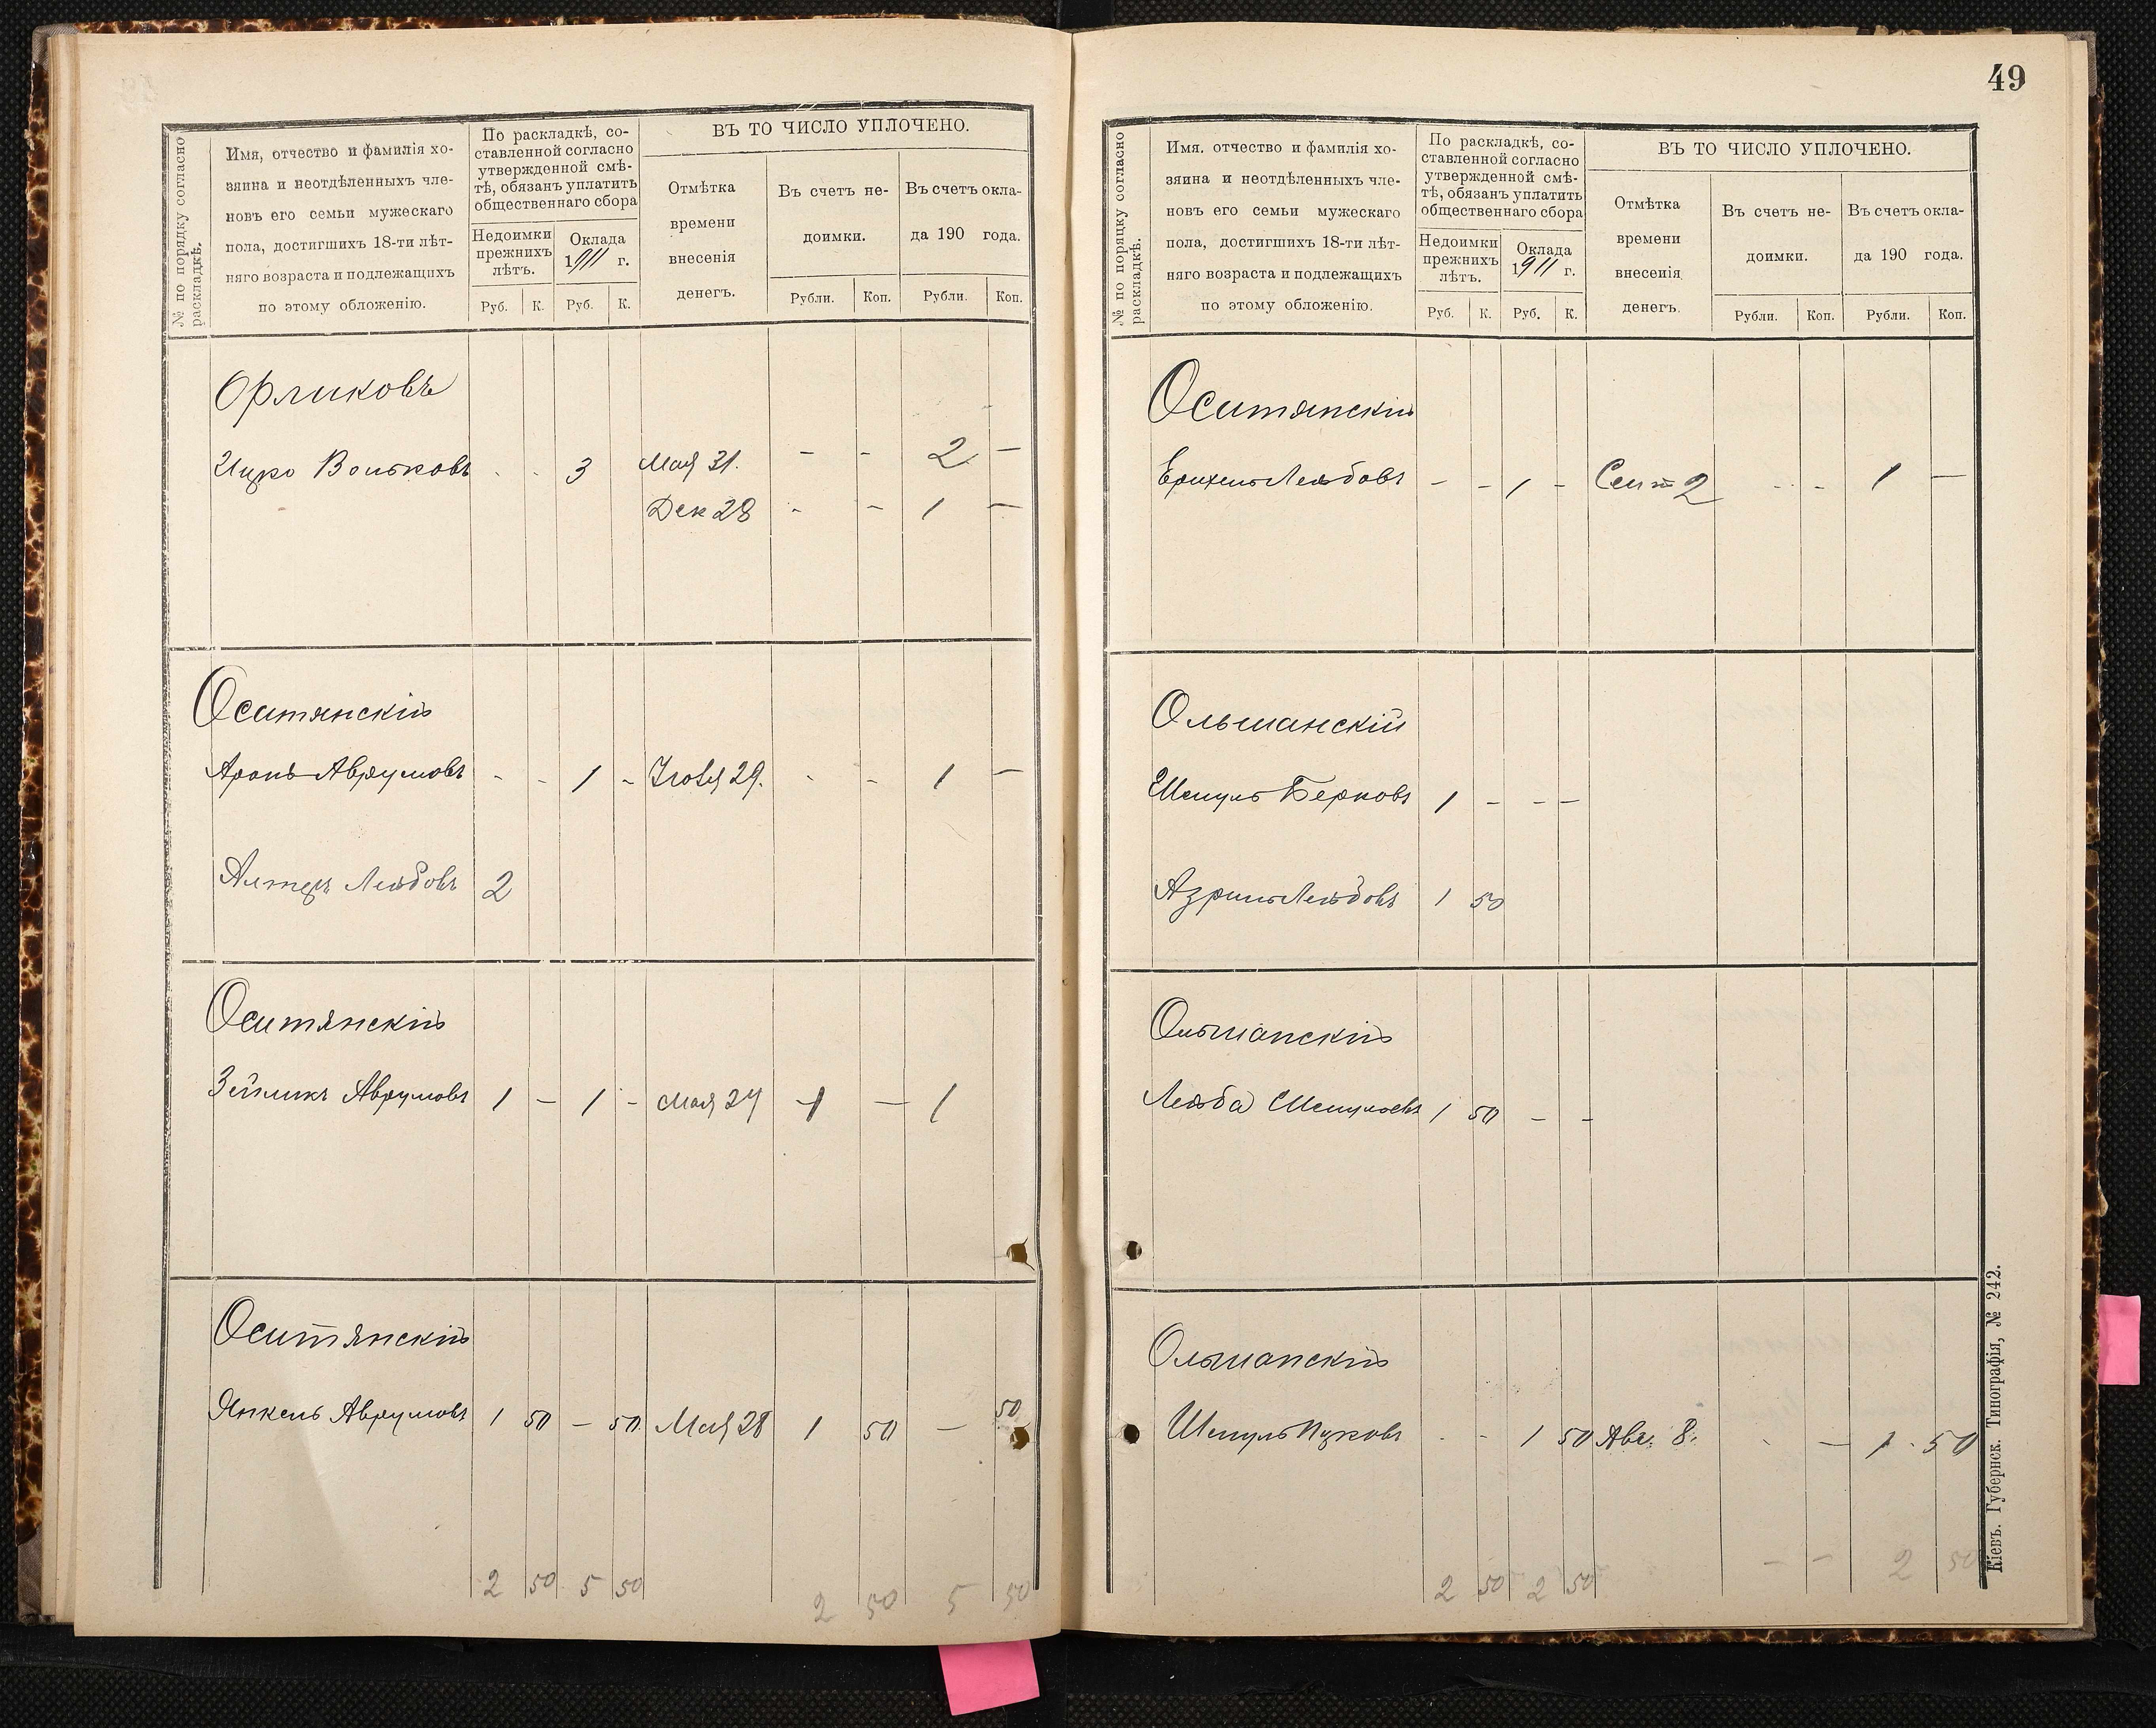 № по порядку согласно раскладкѣ.
Имя, отчество и фамилія хо-
зяина и неотдѣленныхъ чле-
новъ его семьи мужескаго
пола, достигшихъ 18-ти лѣт-
няго возраста и подлежащихъ
по этому обложенію.
По раскладкѣ, со-
ставленной согласно
утвержденной смѣ-
тѣ, обязанъ уплатить
общественнаго сбора
Недоимки прежнихъ лѣтъ.
Оклада 1911 г.
Руб. К. Руб. К.
ВЪ ТО ЧИСЛО УПЛОЧЕНО.
Отмѣтка
времени
внесенія
денегъ.
Въ счетъ не-
доимки.
Въ счетъ окла-
да 190 года.
Рубли. Коп. Рубли. Коп.
Орликовъ
Ицко Вольковъ - - 3 Мая 31. - - 2 -
Дек 28 - - 1 -
Оситянскій
Аронъ Аврумовъ - - 1 - Іюля 29. - - 1 -
Алтеръ Лейбовъ 2
Оситянскій
Зейликъ Аврумовъ 1 - 1 - Мая 24 1 - 1
Оситянскій
Янкель Аврумовъ 1 50 - 50 Мая 28 1 50 - 50
2 50 5 50 2 50 5 50
49
№ по порядку согласно раскладкѣ.
Имя, отчество и фамилія хо-
зяина и неотдѣленныхъ чле-
новъ его семьи мужескаго
пола, достигшихъ 18-ти лѣт-
няго возраста и подлежащихъ
по этому обложенію.
По раскладкѣ, со-
ставленной согласно
утвержденной смѣ-
тѣ, обязанъ уплатить
общественнаго сбора
Недоимки прежнихъ лѣтъ.
Оклада 1911 г.
Руб. К. Руб. К.
ВЪ ТО ЧИСЛО УПЛОЧЕНО.
Отмѣтка
времени
внесенія
денегъ.
Въ счетъ не-
доимки.
Въ счетъ окла-
да 190 года.
Рубли. Коп. Рубли. Коп.
Оситянскій
Лейбовъ - - 1 - Сент 2 - - 1 -
Ольшанскій
Шмуль Берковъ 1 - - -
Азриль Лейбовъ 1 50
Ольшанскій
Лейба Шмулевъ 1 50 - -
Ольшанскій
Шмуль Ицковъ - - 1 50 Авг. 8. - - 1 50
2 50 2 50 - - 2 50
Кіевъ. Губернск. Типографія, № 242.